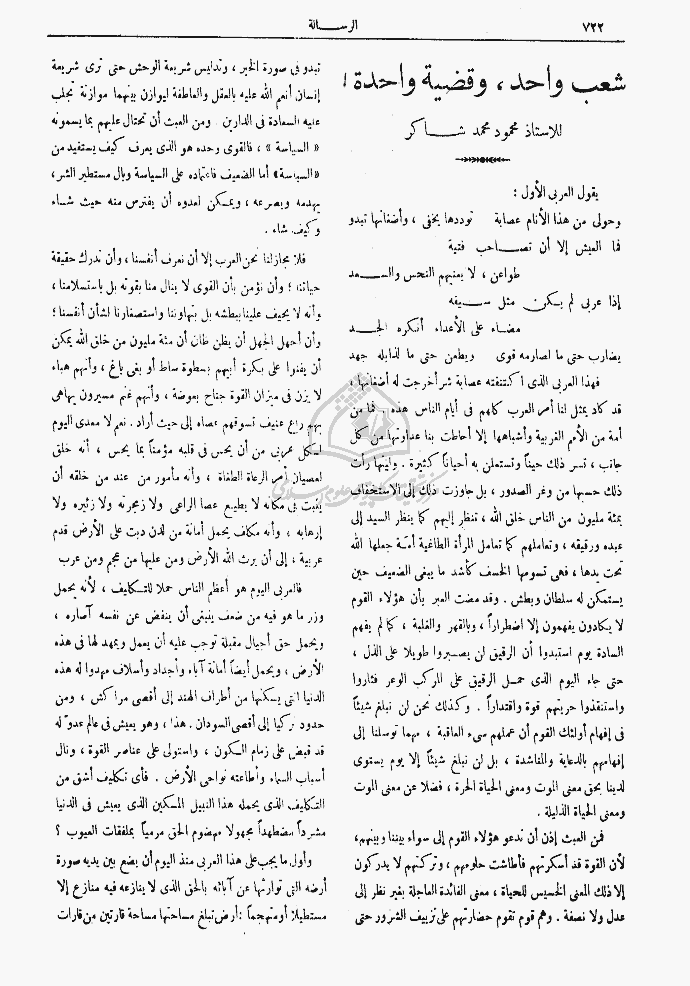 ٧٢٢
الرسالة
شعب واحد، وقضية واحدة!
للاستاذ محمود محمد شاكر
يقول العربى الأول:
وحولى من هذا الأنام عصابة توددها يخفى، وأضغانها تبدو
فما العيش إلا أن تصاحب فتية
طواعن، لا يعنيهم النحس والسعد
إذا عربى لم يكن مثل سيفه
مضاء على الأعداء أنكره الجد
يضارب حتى ما لصارمه قوى ويطعن حتى ما لذابله جهد
فهذا العربى الذى اكتنفته عصابة شر أخرجت له أضغانها،
قد كاد يمثل لنا أمر العرب كلهم فى أيام الناس هذه. فما من
أمة من الأمم الغربية وأشباهها إلا أحاطت بنا عداوتها من كل
جانب، تسر ذلك حيناً وتستعلن به أحياناً كثيرة. وليتها رأت
ذلك حسبها من وغر الصدور، بل جاوزت ذلك إلى الاستخفاف
بمئة مليون من الناس خلق الله، تنظر إليهم كما ينظر السيد إلى
عبده ورقيقه، وتعاملهم كما تعامل المرأة الطاغية أمَة جعلها الله
تحت يدها، فهى تسومها الخسف كأشد ما يبغى الضعيف حين
يستمكن له سلطان وبطش. وقد مضت العبر بأن هؤلاء القوم
لا يكادون يفهمون إلا اضطراراً، وبالقهر والغلبة، كما لم يفهم
السادة يوم استبدوا أن الرقيق لن يصبروا طويلا على الذل،
حتى جاء اليوم الذى حمل الرقيق على المركب الوعر فثاروا
واستنقذوا حريتهم قوة واقتداراً. وكذلك نحن لن نبلغ شيئاً
فى إفهام أولئك القوم أن عملهم سىء العاقبة، مهما توسلنا إلى
إفهامهم بالدعاية والمناشدة، بل لن نبلغ شيئاً إلا يوم يستوى
لدينا بحق معنى الموت ومعنى الحياة الحرة، فضلا عن معنى الموت
ومعنى الحياة الذليلة.
فمن العبث إذن أن ندعو هؤلاء القوم إلى سواء بيننا وبينهم،
لأن القوة قد أسكرتهم فأطاشت حلومهم، وتركتهم لا يدركون
إلا ذلك المعنى الخسيس للحياة، معنى الفائدة العاجلة بغير نظر إلى
عدل ولا نصفة. وهم قوم تقوم حضارتهم على تزييف الشرور حتى
تبدو فى صورة الخير، وتدليس شريعة الوحش حتى ترى شريعة
إنسان أنعم الله عليه بالعقل والعاطفة ليوازن بينهما موازنة تجلب
عليه السعادة فى الدارين. ومن العبث أن نحتال عليهم بما يسمونه
«السياسة»، فالقوى وحده هو الذى يعرف كيف يستفيد من
«السياسة» أما الضعيف فاعتماده على السياسة وبال مستطير الشر،
يهدمه ويصرعه، ويمكن لعدوه أن يفترس منه حيث شاء
وكيف شاء.
فلا مجاز لنا نحن العرب إلا أن نعرف أنفسنا، وأن ندرك حقيقة
حياتنا؛ وأن نؤمن بأن القوى لا ينال منا بقوته بل باستسلامنا،
وأنه لا يحيف علينا ببطشه بل بتهاوننا واستصغارنا لشأن أنفسنا؛
وأن أجهل الجهل أن يظن ظان أن مئة مليون من خلق الله يمكن
أن يفنوا على بكرة أبيهم بسطوة ساط أو بغى باغ، وأنهم هباء
لا يزن فى ميزان القوة جناح بعوضة، وأنهم غنم مسيرون يهاهى
بهم راع عنيف تسوقهم عصاه إلى حيث أراد. نعم لا معدى اليوم
لكل عربى من أن يحس فى قلبه مؤمناً بما يحس، أنه خلق
لعصيان أمر الرعاة الطغاة، وأنه مأمور من عند من خلقه أن
يثبت فى مكانه لا يطيع عصا الراعى ولا زمجرته ولا زئيره ولا
إرهابه، وأنه مكلف يحمل أمانة من لدن دبت على الأرض قدم
عربية، إلى أن يرث الله الأرض ومن عليها من عجم ومن عرب
فالعربى اليوم هو أعظم الناس حملا للتكاليف، لأنه يحمل
وزر ما هو فيه من ضعف ينبغى أن ينفض عن نفسه آصاره،
ويحمل حق أجيال مقبلة توجب عليه أن يعمل ويمهد لها فى هذه
الأرض، ويحمل أيضاً أمانة آباء وأجداد وأسلاف مهدوا له هذه
الدنيا التى يسكنها من أطراف الهند إلى أقصى مراكش، ومن
حدود تركيا إلى أقصى السودان. هذا، وهو يعيش فى عالم عدوٌ له
قد قبض على زمام السكون، واستولى على عناصر القوة، ونال
أسباب السماء وأطاعته نواحى الأرض. فأى تكليف أشق من
التكليف الذى يحمله هذا النبيل المسكين الذى يعيش فى الدنيا
مشرداً مضطهداً مجهولا مهضوم الحق مرمياً بملفقات العيوب؟
وأول ما يجب على هذا العربى منذ اليوم أن يضع بين يديه صورة
أرضه التى توارثها عن آبائه بالحق الذى لا ينازعه فيه منازع إلا
مستطيلاً أو متهجماً: أرض تبلغ مساحتها مساحة قارتين من قارات